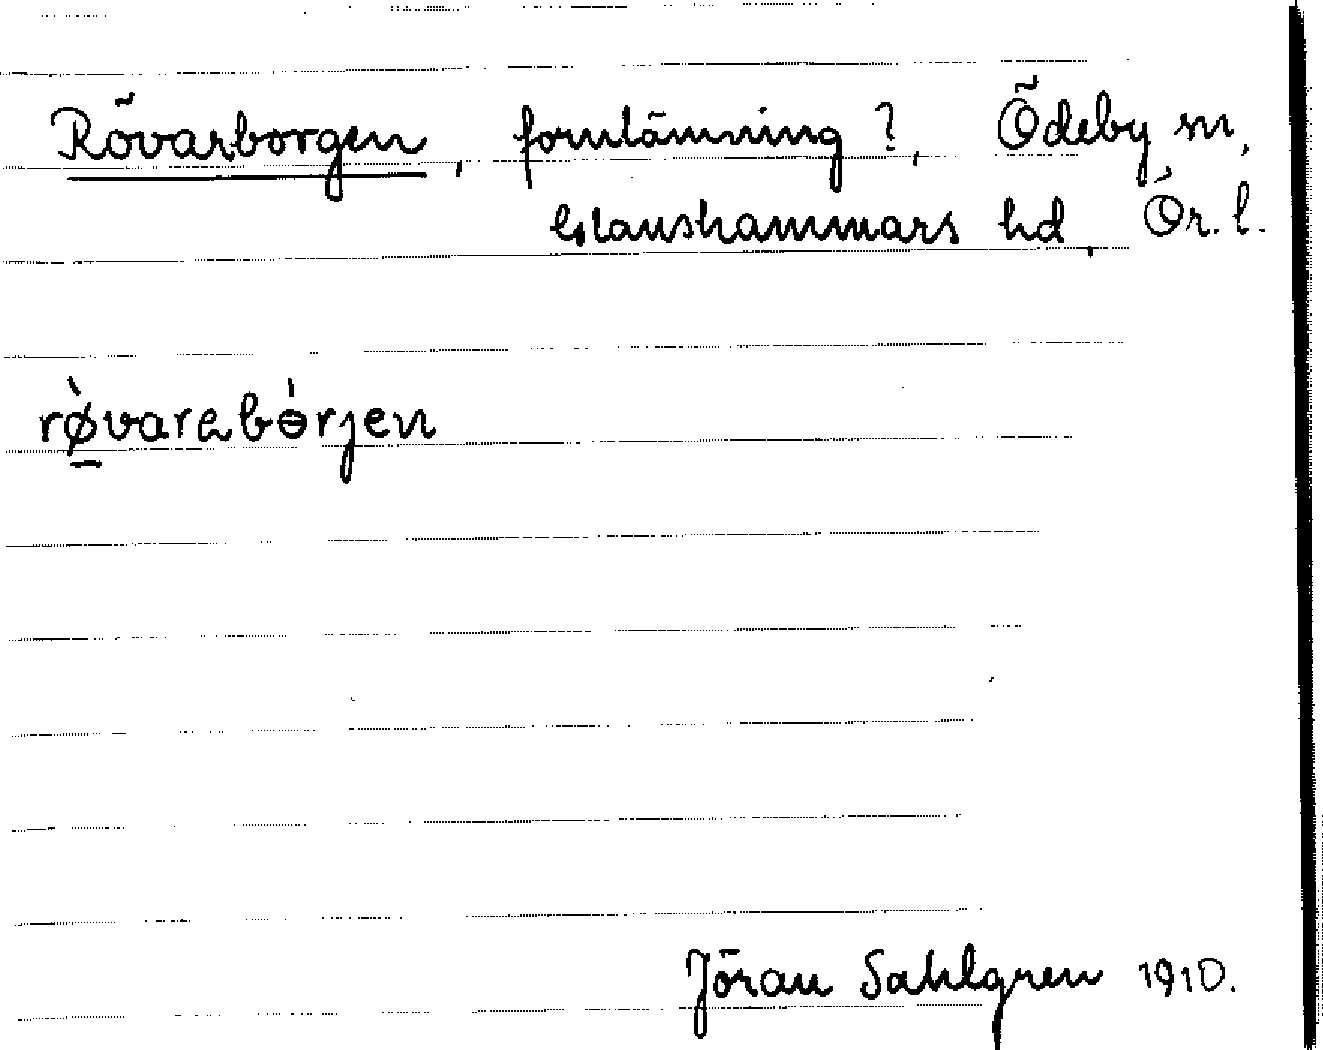 Rövarborgen, fornlämning?, Ödeby sn,
Glanshammars hd, Ör. l.
rø̀varebɵ́rjen
Jöran Sahlgren 1910.